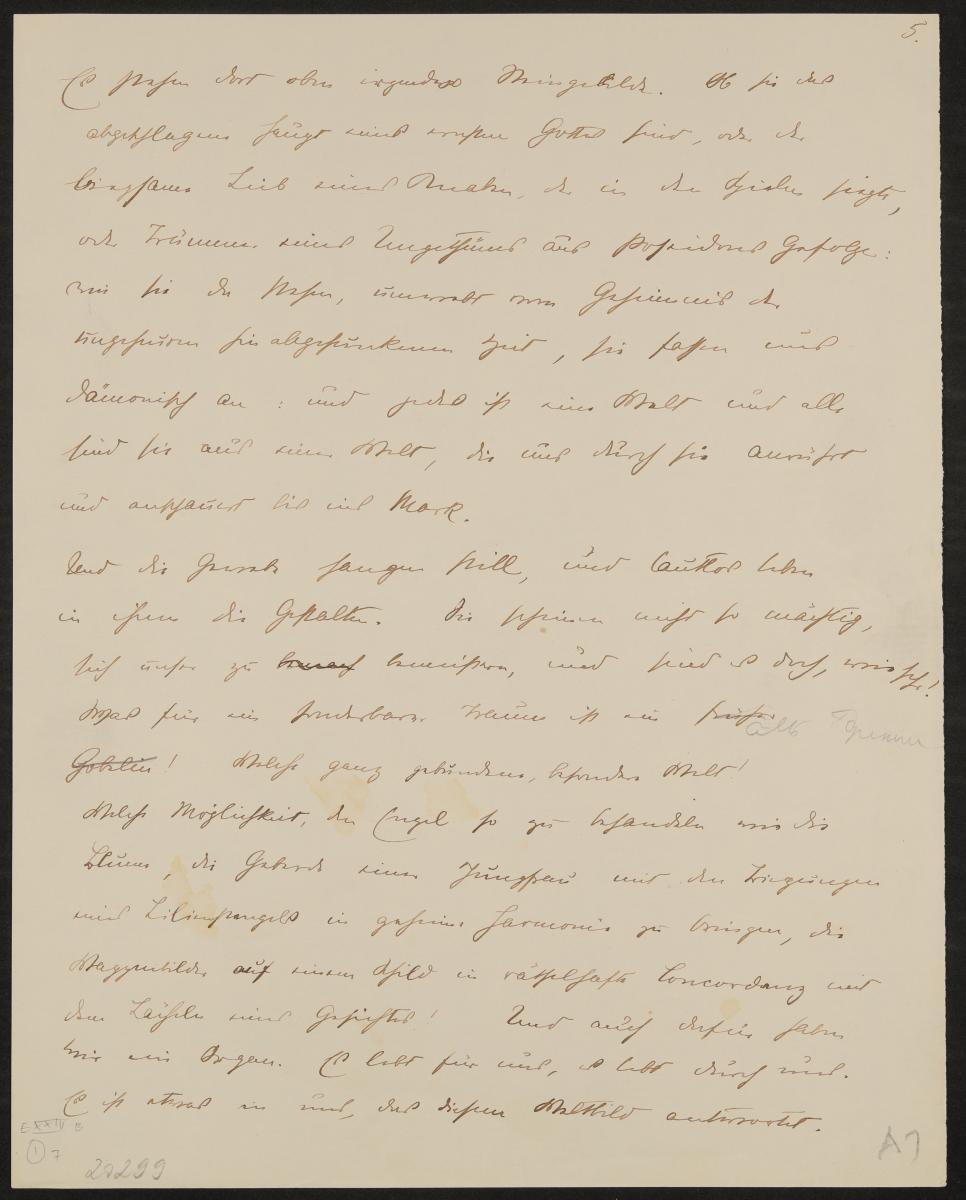 5.
Es stehen dort oben irgendwo Steingebilde. Ob sie das
abgeschlagene Haupt eines ernsten Gottes sind, oder der
biegsame Leib eines Drachen, der in den Gischen singt,
oder Trümmer eines Ungethüms aus Poseidons Gefolge:
wie sie da stehen, umwebt vom Geheimnis der
ungeheuren hinabgesunkenen Zeit, sie fassen uns
dämonisch an: und jedes ist eine Welt und alle
sind sie aus einer Welt, die uns durch sie anrührt
und anschauert bis ins Mark.
Und die Gewebe hangen still, und lautlos leben
in ihnen die Gestalten. Die scheinen nicht so mächtig,
sich unser zu bemeistern, und sind es doch, wie sehr!
Was für ein sonderbarer Traum ist ein
alte
Gobelin! Welche ganz gebundene, besondere Welt!
Welche Möglichkeit, den Engel so zu behandeln wie die
Blume, die Geberde einer Jungfrau mit den Biegungen
eines Lilienstengels in geheime Harmonie zu bringen, die
Wappenbilder auf einem Schild in räthselhafte Concordanz mit
dem Lächeln eines Gesichtes! Und auch dafür haben
wir ein Organ. Es lebt für uns, es lebt durch uns.
Es ist etwas in uns, das diesem Weltbild antwortet.
E XXIV
1
7
20299
A7